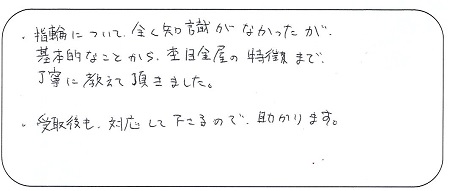 ・指輪について、全く知識がなかったが、
基本的なことから、杢目金屋の特徴まで、
丁寧に教えて頂きました。
・受取後も、対応して下さるので、助かります。